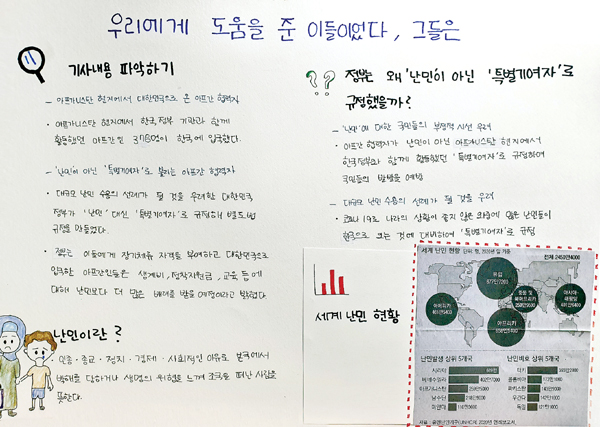 우리에게 도움을 준 이들이었다, 그들은
기사내용 파악하기
- 아프가니스탄 현지에서 대한민국으로 온 아프간 협력자
• 아프가니스탄 현지에서 한국정부 기관과 함께
활동했던 아프간인 378명이 한국에 입국했다.
- '난민'이 아닌 '특별기여자'로 불리는 아프간 협력자
• 대규모 난민 수용의 선례가 될 것을 우려한 대한민국
정부가 '난민' 대신 '특별기여자'로 규정해
규정을 만들었다.
• 정부는 이들에게 장기체류 자격을 부여하고 대한민국으로
입국한 아프간인들은 생계비, 정착지원금, 교육 등에
대해 난민보다 더 많은 배려를 받을 예정이라고 밝혔다
난민이란?
• 인종·종교·정치·경제·사회적인 이유로 본국에서
박해를 당하거나 생명의 위협을 느껴 조국을 떠난 사람을
뜻한다.
?? 정부는 왜 '난민'이 아닌 '특별기여자'로
규정했을까?
- '난민'에 대한 국민들의 부정적 시선 우려
• 아프간 협력자가 난민이 아닌 아프가니스탄 현지에서
한국정부와 함께 활동했던 '특별기여자'로 규정하여
국민들의 반발을 예방
- 대규모 난민 수용의 선례가 될 것을 우려
• 코로나 19로 나라의 상황이 좋지 않은 와중에 많은 난민들이
한국으로 오는 것에 대비하여 '특별기여자'로 규정
세계 난민 현황
세계 난민 현황
유럽
아메리카
아프리카
난민발생 상위 5개국
시리아
베네수엘라
아프가니스탄
남수단
미얀마
난민비호 상위 5개국
터키
콜롬비아
파키스탄
우간다
독일